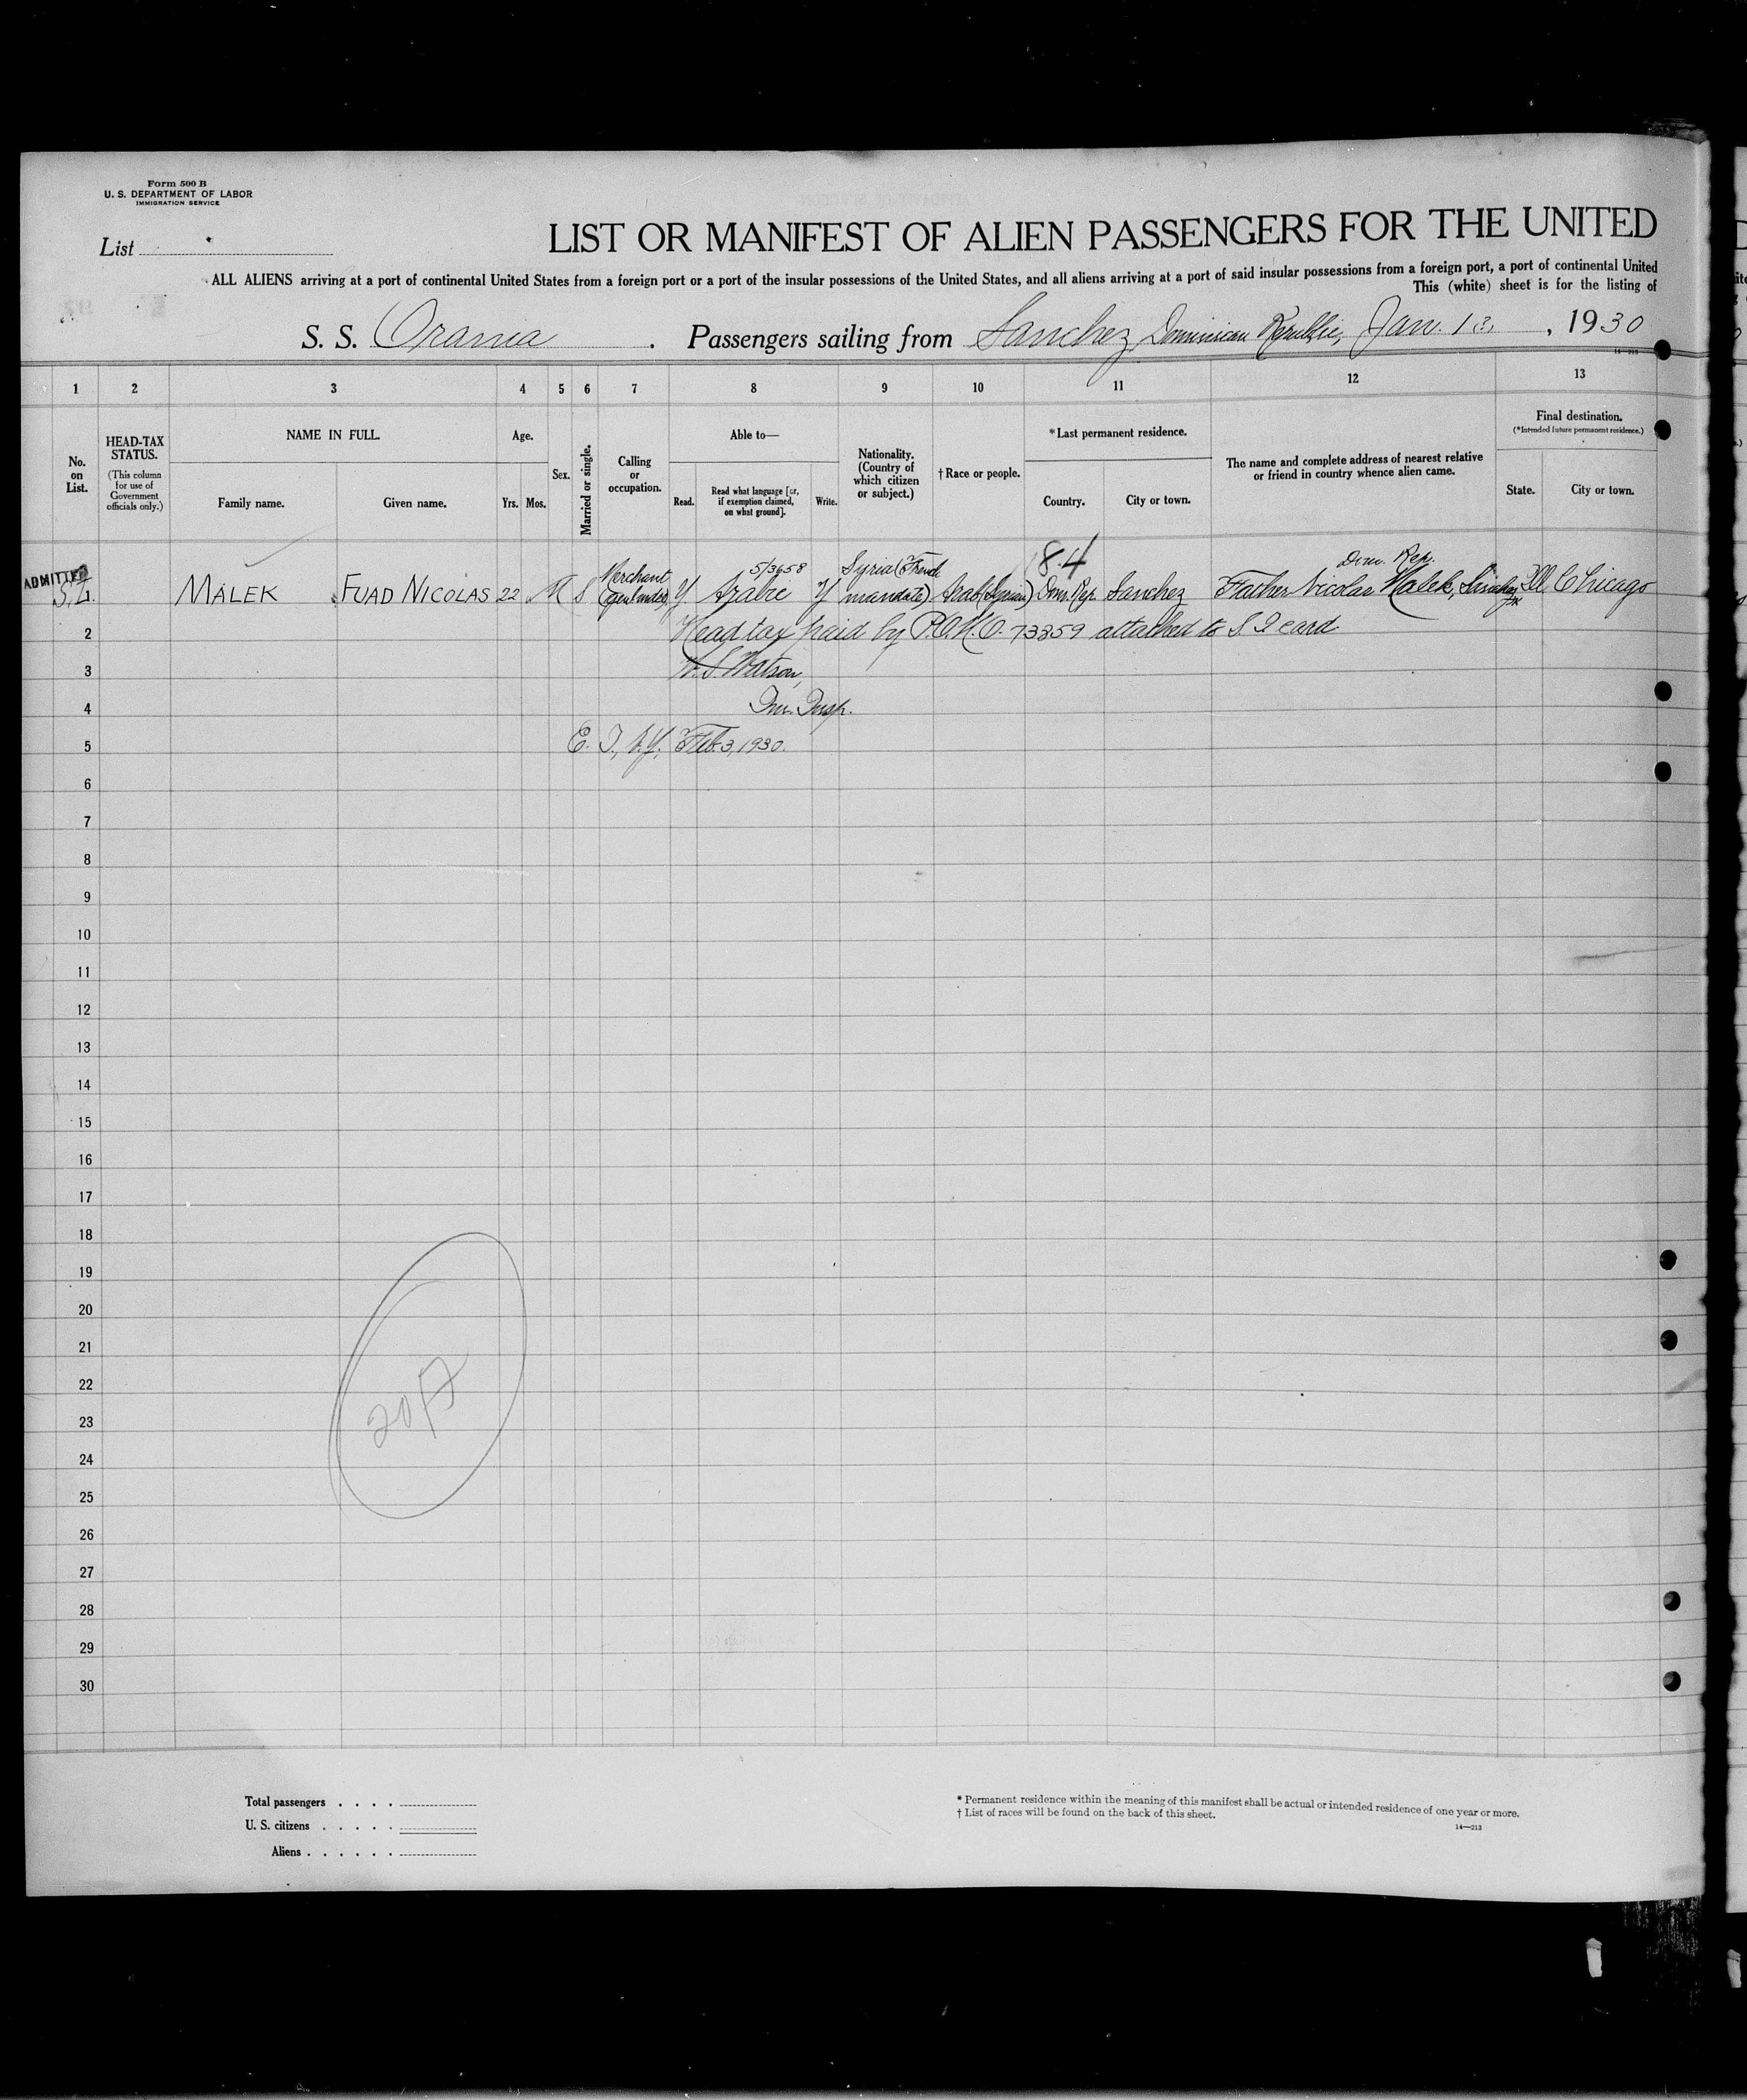 Form 500 B
U. S. DEPARTMENT OF LABOR
IMMIGRATION SERVICE
List
LIST OR MANIFEST OF ALIEN PASSENGERS FOR THE UNITED
ALL ALIENS arriving at a port of continental United States from a foreign port or a port of the insular possessions of the United States, and all aliens arriving at a port of said insular possessions from a foreign port, a port of continental United
This (white) sheet is for the listing of
S. S. Orania . Passengers sailing from Sanchez, Dominican Republic, Jan. 13, , 1930
14—213
1 2 3 4 5 6 7 8 9 10 11 12 13
No. on List.
HEAD-TAX STATUS.
(This column for use of Government officials only.)
NAME IN FULL.
Family name.
Given name.
Age.
Yrs. Mos.
Sex.
Married or single.
Calling or occupation.
Able to—
Read.
Read what language [or, if exemption claimed, on what ground].
Write.
Nationality. (Country of which citizen or subject.)
† Race or people.
*Last permanent residence.
Country.
City or town.
The name and complete address of nearest relative or friend in country whence alien came.
Final destination.
(*Intended future permanent residence.)
State.
City or town.
Merchant 5/3658 Syria (French 84 Dom. Rep.
ADMITTED
1 MALEK FUAD NICOLAS 22 M S Y Arabic Y mandate) Arab (Syrian) Dom. Rep. Sanchez Father Nicolas Malek, Sanchez Ill. Chicago
2 Head tax paid by P.O.M.O. 73359 attached to S I card
3 W. S. Watson,
4 Im. Insp.
5 E. I., N.Y. Feb. 3, 1930.
6
7
8
9
10
11
12
13
14
15
16
17
18
19
20
21
22
23
24
25
26
27
28
29
30
Total passengers . . . .
U. S. citizens . . . . .
Aliens . . . . . .
* Permanent residence within the meaning of this manifest shall be actual or intended residence of one year or more.
† List of races will be found on the back of this sheet.
14—213